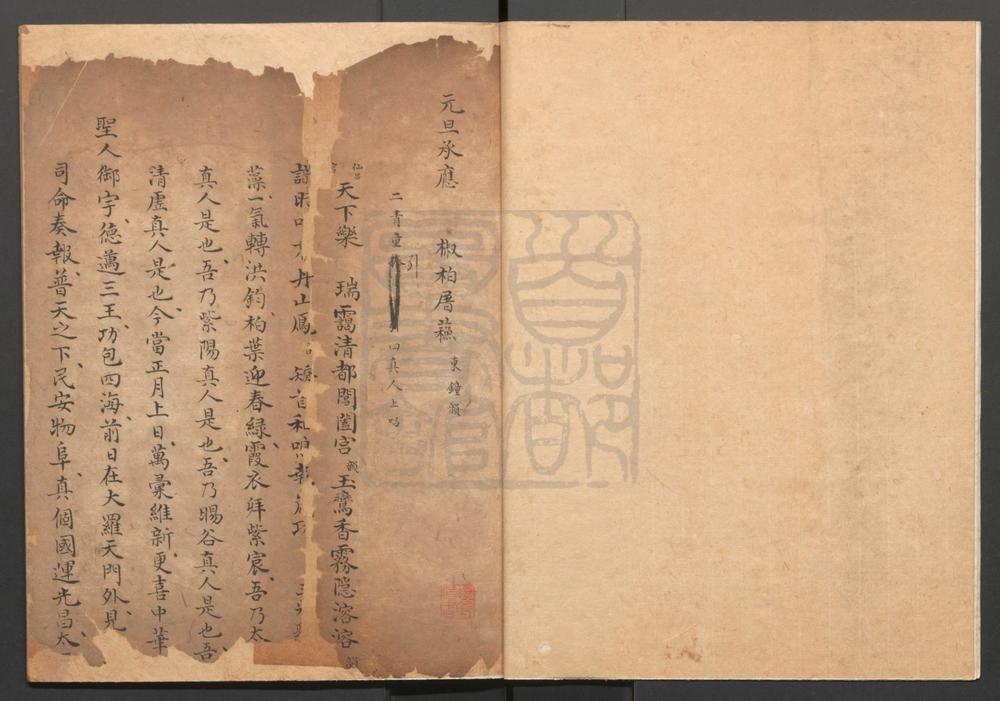 元旦承應
椒柏屠蘇 東鐘韻
二青童引四真人上唱
天下樂 瑞靄清都閶闔宮韻玉鸞香霧隱溶溶韻
丹山
藻一氣轉洪鈞柏葉迎春綠霞衣拜紫宸吾乃太
真人是也吾乃紫陽真人是也吾乃暘谷真人是也吾
清虛真人是也今當正月上日萬彙維新更喜中華
聖人御宇德邁三王功包四海前日在大羅天門外見
司命奏報普天之下民安物阜真個國運光昌太